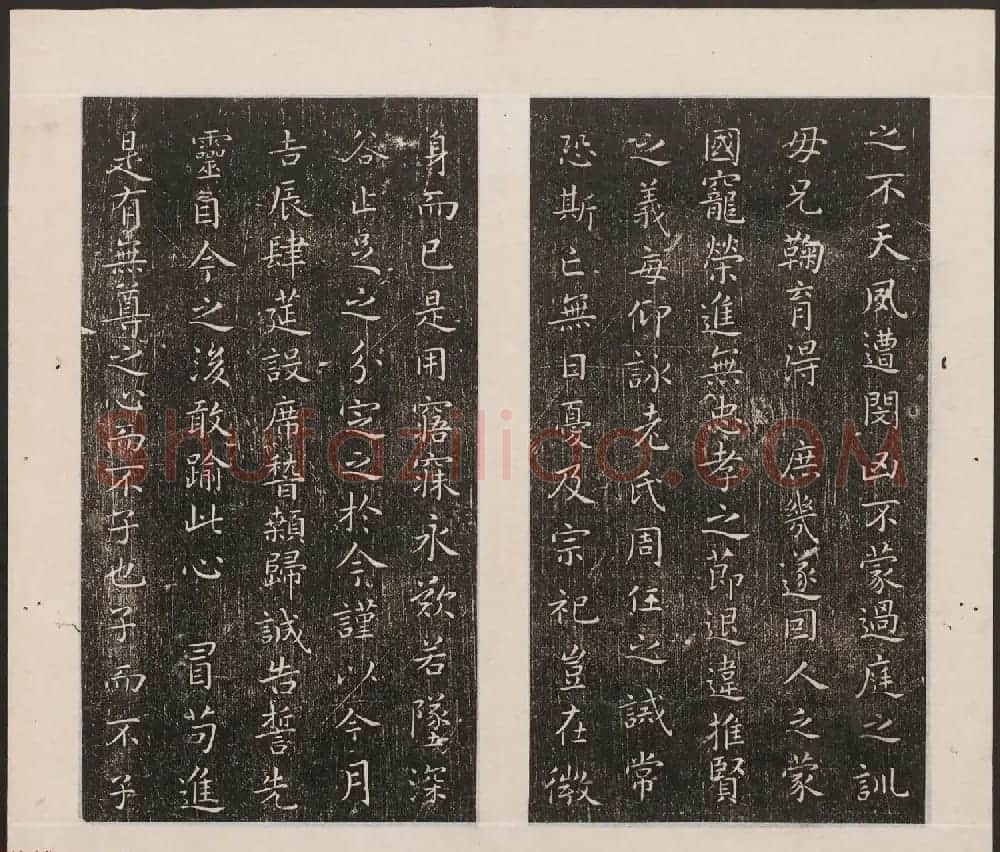 之不天夙遭閔凶不蒙過庭之訓
母兄鞠育得 庶幾遂因人之蒙
國寵榮進無忠孝之節退違推賢
之義每仰詠老氏周任之誡常
恐斯亡無日憂及宗祀豈在微
身而已是用寤寐永歎若墜深
谷止足之分定之於今謹以今月
吉辰肆莚設席稽顙歸誠告誓先
靈自今之後敢踰此心 冒苟進
是有無尊之心而不子也子而不子
shufaziliao.COM